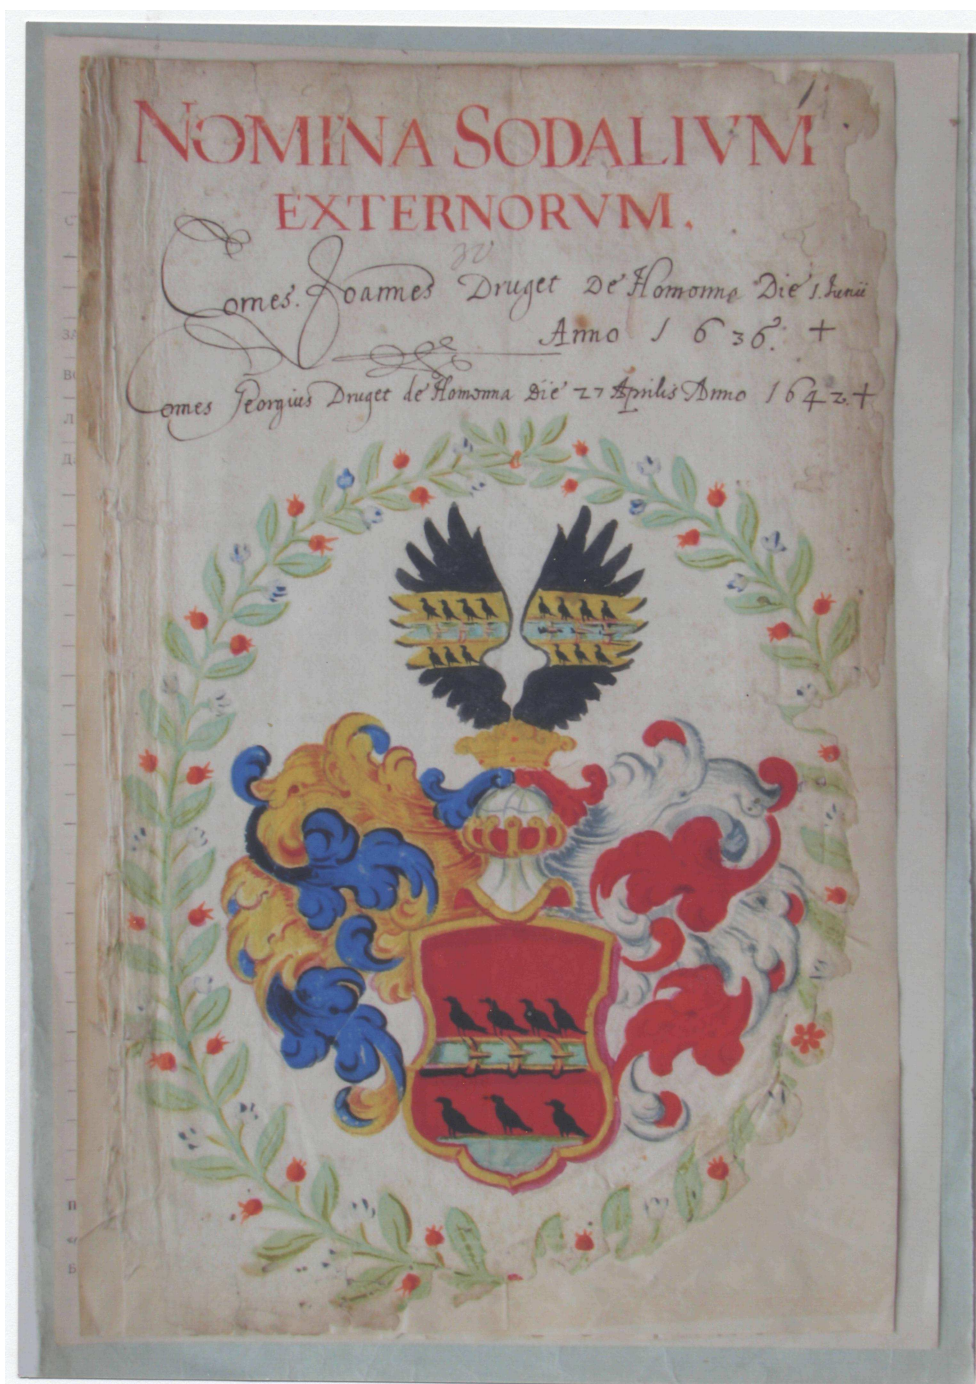 1.
NOMINA SODALIVM
EXTERNORVM.
Comes. Joannes Druget De Homonna Die 1. Junii
Anno 1636. +
Comes Georgius Druget de Homonna Die 27 Aprilis Anno 1642. +